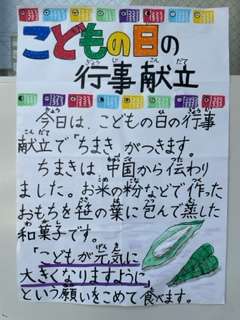 こどもの日の
行事献立
今日は、こどもの日の行事
献立で「ちまき」がつきます。
ちまきは、中国から伝わり
ました。お米の粉などで作った
おもちを笹の葉に包んで蒸した
和菓子です。
「こどもが元気に
大きくなりますように」
という願いをこめて食べます。